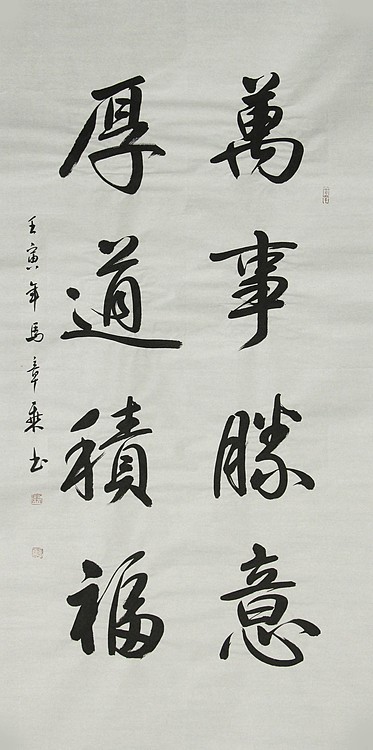 萬事勝意
厚道積福
壬寅年馬章乗书